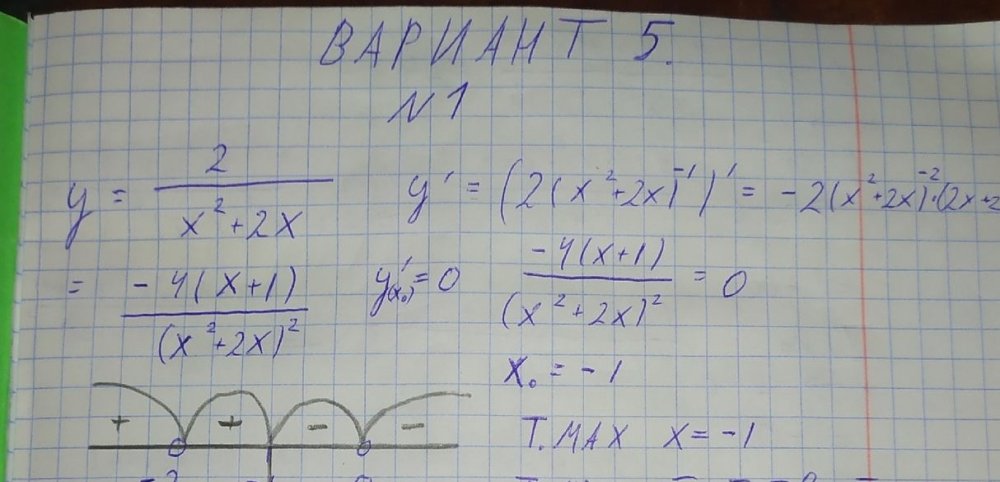 ВАРИАНТ 5.
N1
y = 2/(x²+2x)   y' = (2(x²+2x)⁻¹)' = -2(x²+2x)⁻²·(2x+2
= -4(x+1)/(x²+2x)²   y'(x₀) = 0   -4(x+1)/(x²+2x)² = 0
x₀ = -1
+ + - -
Т.МАХ x = -1